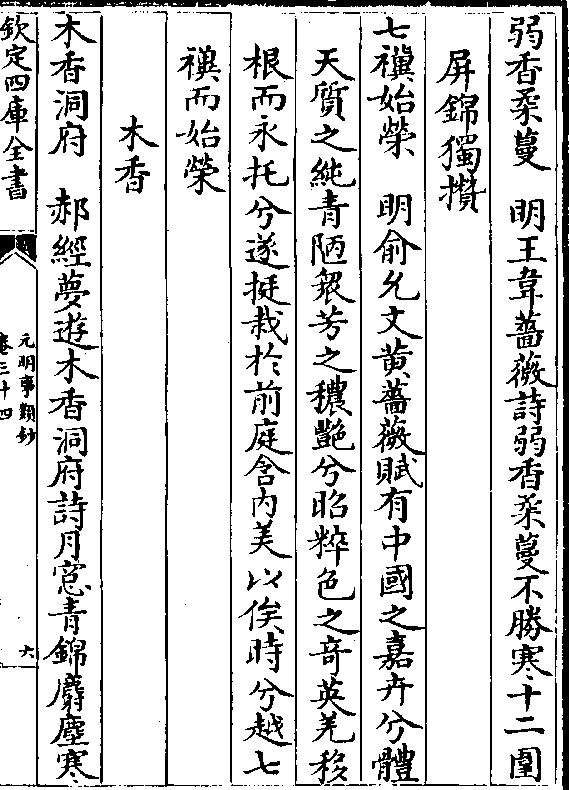 弱香柔蔓　明王韋薔薇詩弱香柔蔓不勝寒十二圍
屏錦獨攢
七禩始榮　明俞允文黃薔薇賦有中國之嘉卉兮體
天質之純青陋眾芳之穠艷兮昭粹色之奇英羌移
根而永托兮遂挺栽於前庭含內美以俟時兮越七
禩而始榮
木香
木香洞府　郝經夢遊木香洞府詩月窓青錦麝塵寒
欽定四庫全書
元明事類鈔
卷三十四
六